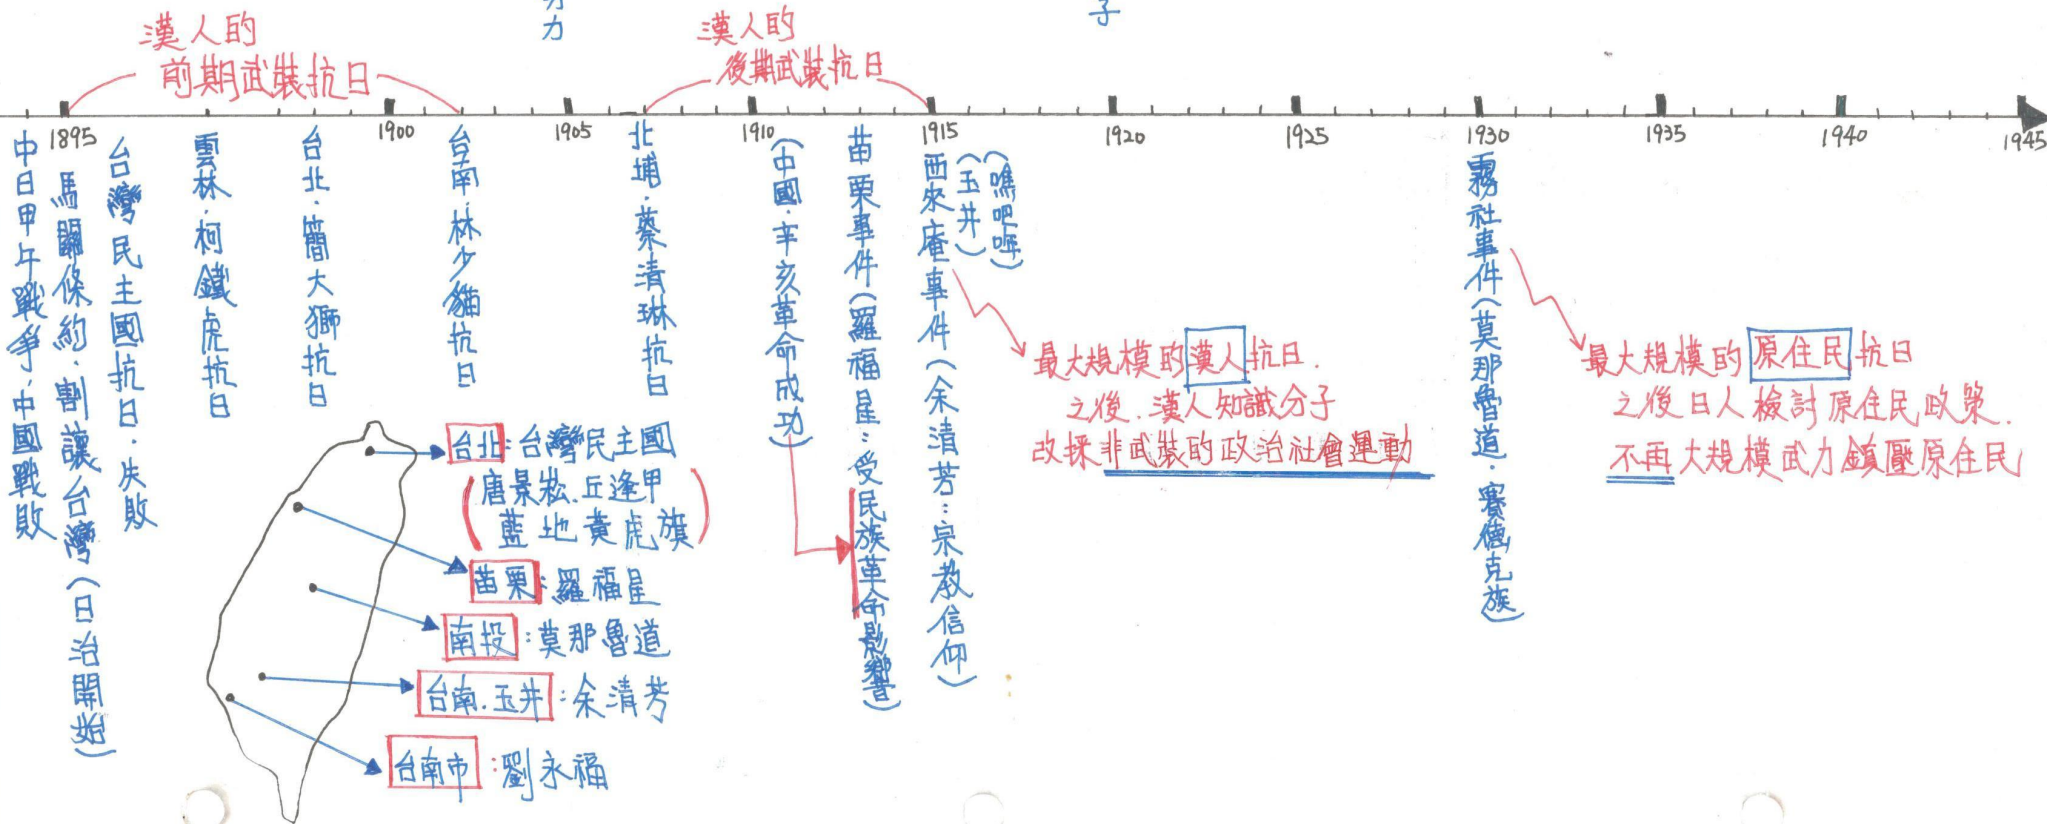 力
子
漢人的
前期武裝抗日
漢人的
後期武裝抗日
1895
1900
1905
1910
1915
1920
1925
1930
1935
1940
1945
中日甲午戰爭.中國戰敗
馬關條約.割讓台灣(日治開始)
台灣民主國抗日.失敗
雲林.柯鐵虎抗日
台北.簡大獅抗日
台南.林少貓抗日
北埔.蔡清琳抗日
(中國.辛亥革命成功)
苗栗事件(羅福星:受民族革命影響)
西來庵事件(余清芳:宗教信仰)
(玉井)
(噍吧哖)
最大規模的漢人抗日.
之後.漢人知識分子
改採非武裝的政治社會運動
霧社事件(莫那魯道.賽德克族)
最大規模的原住民抗日
之後日人檢討原住民政策.
不再大規模武力鎮壓原住民
台北:台灣民主國
(唐景崧.丘逢甲
藍地黃虎旗)
苗栗:羅福星
南投:莫那魯道
台南.玉井:余清芳
台南市:劉永福